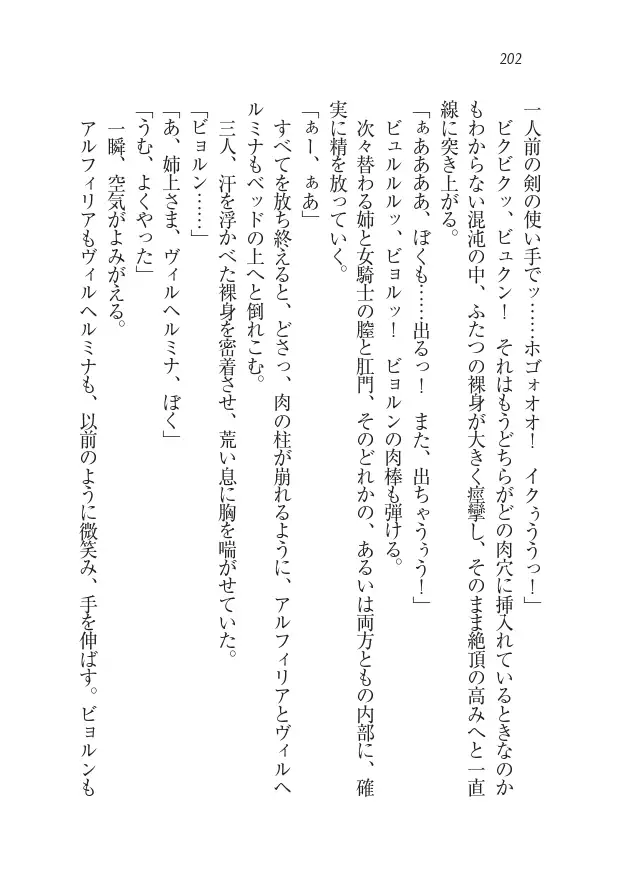 202
一人前の剣の使い手でッ……ホゴォオオ！　イクぅううっ！」
ビクビクッ、ビュクン！　それはもうどちらがどの肉穴に挿入れているときなのか
もわからない混沌の中、ふたつの裸身が大きく痙攣し、そのまま絶頂の高みへと一直
線に突き上がる。
「ぁああああ、ぼくも……出るっ！　また、出ちゃうぅう！」
ビュルルルッ、ビョルッ！　ビョルンの肉棒も弾ける。
次々替わる姉と女騎士の膣と肛門、そのどれかの、あるいは両方ともの内部に、確
実に精を放っていく。
「ぁー、ぁあ」
すべてを放ち終えると、どさっ、肉の柱が崩れるように、アルフィリアとヴィルヘ
ルミナもベッドの上へと倒れこむ。
三人、汗を浮かべた裸身を密着させ、荒い息に胸を喘がせていた。
「ビョルン……」
「あ、姉上さま、ヴィルヘルミナ、ぼく」
「うむ、よくやった」
一瞬、空気がよみがえる。
アルフィリアもヴィルヘルミナも、以前のように微笑み、手を伸ばす。ビョルンも